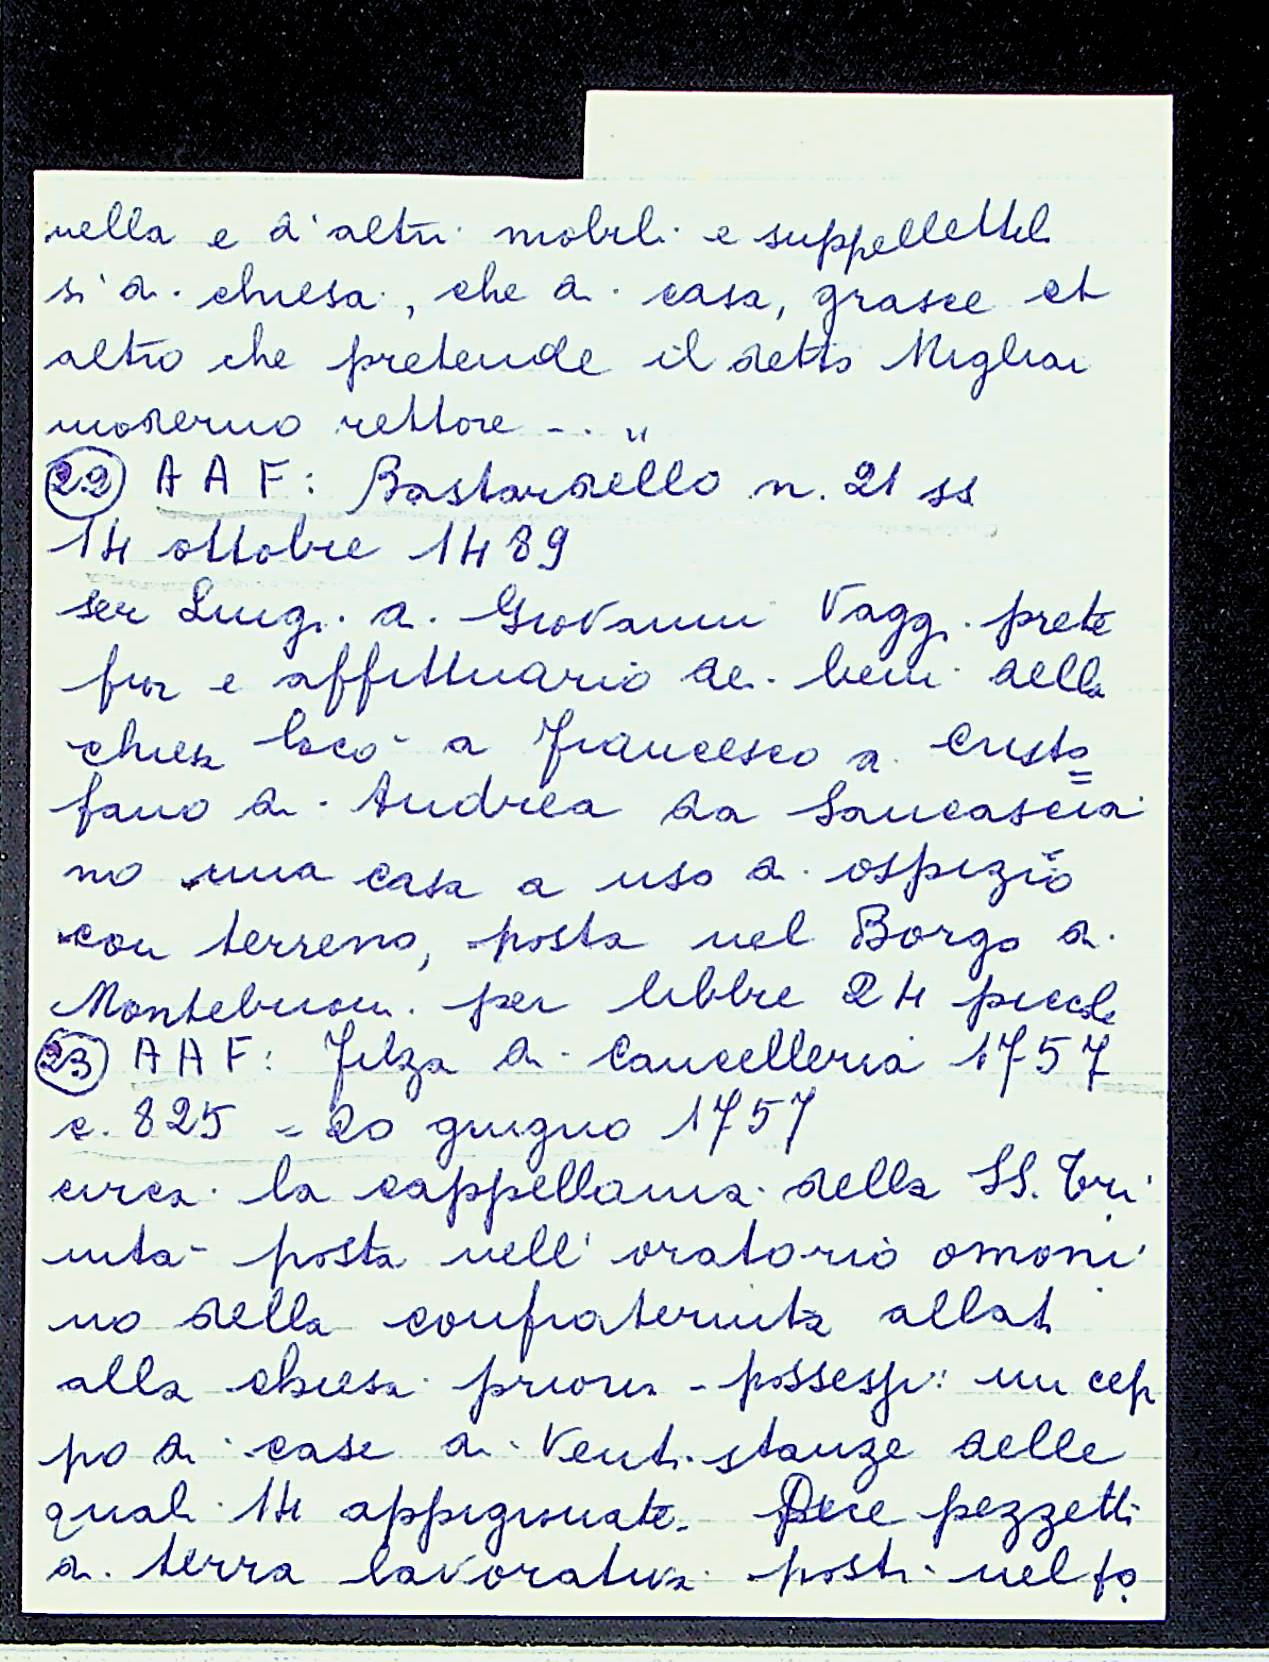 nella e d'altri mobili e suppellettil
sì di chiesa, che di casa, grasce et
altro che pretende il detto Migliai
moderno rettore - . . "
(22) A A F: Bastardello n. 21 ss
14 ottobre 1489
ser Luigi di Giovanni Vaggi prete
fior e affittuario dei beni della
chiesa locò a Francesco di Cristo=
fano di Andrea da Sancascia
no una casa a uso di ospizio
con terreno, posta nel Borgo di
Montebuoni per libbre 24 piccole
(23) A A F: Filza di Cancelleria 1757
c. 825 - 20 giugno 1757
circa la cappellania della SS. Tri
nità posta nell'oratorio omoni
mo della confraternita allat.
alla chiesa prioria - possessi: un cep
po di case di venti stanze delle
quali 14 appigionate. Dieci pezzetti
di terra lavorativa posti nel fo